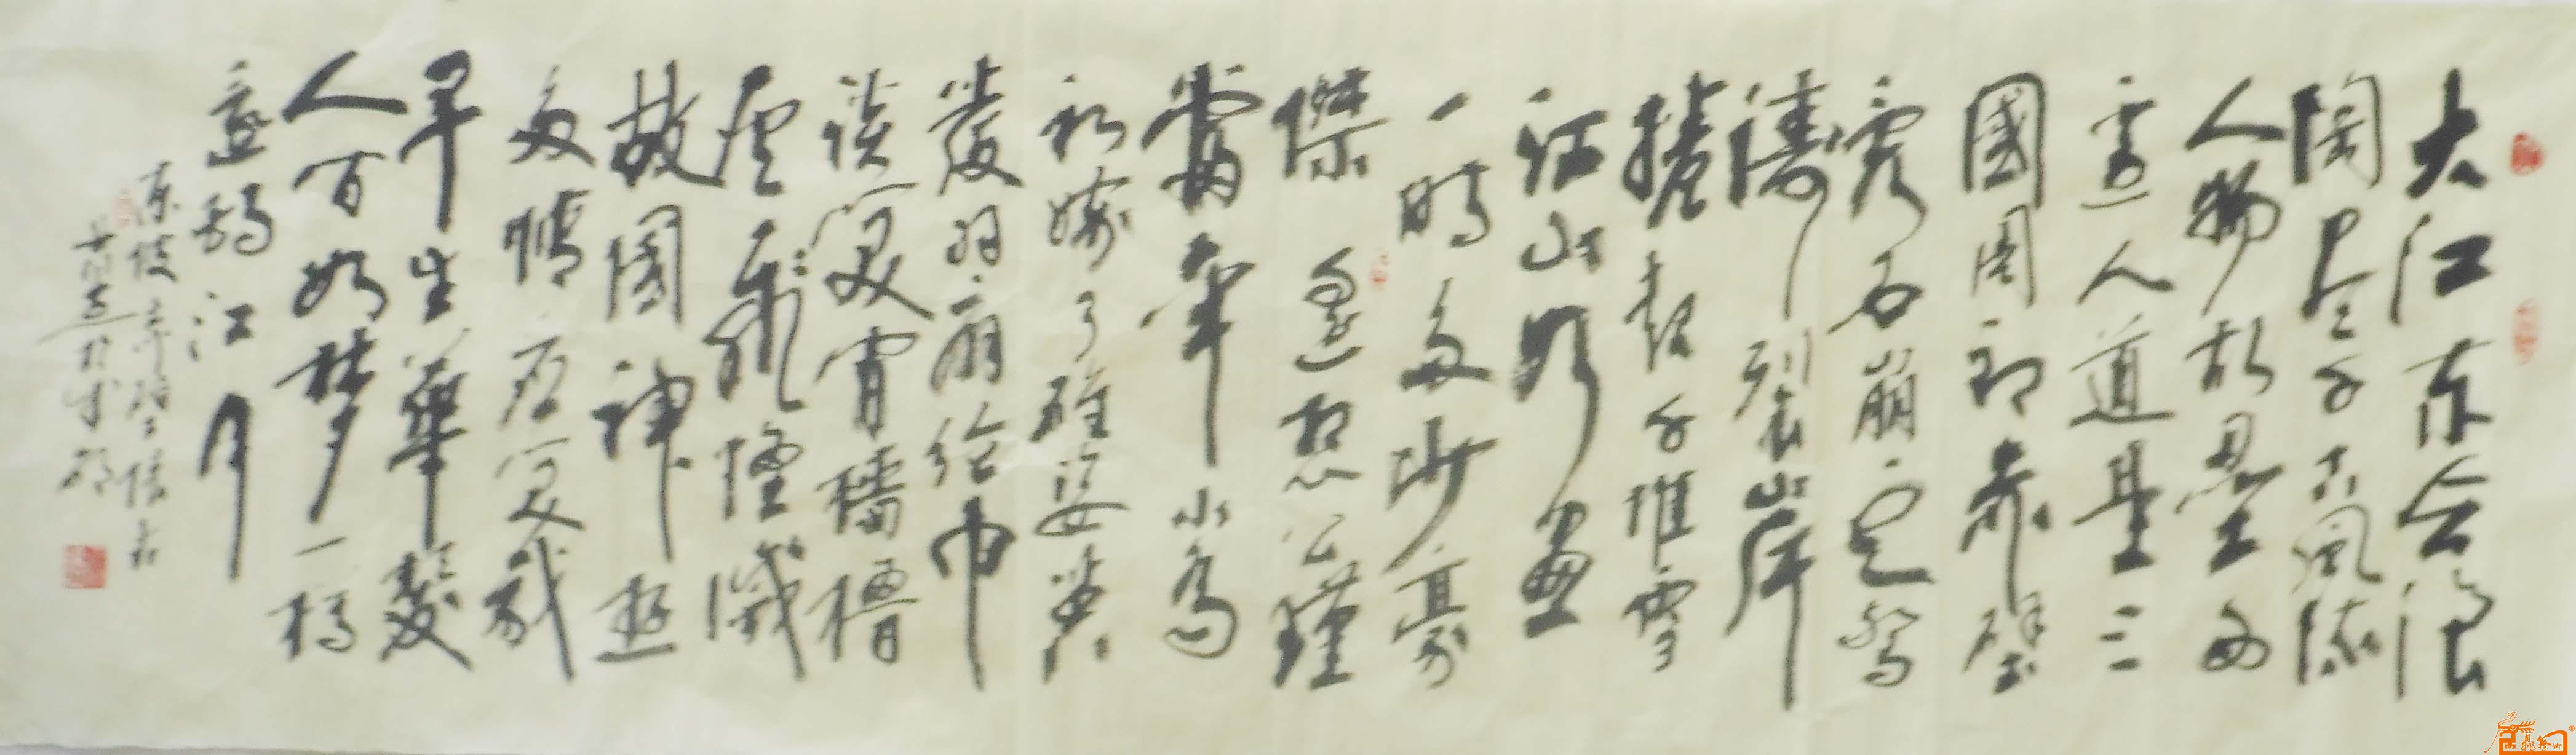 大江東去浪
尽千古風流
人物故壘西
邊人道是三
國周郎赤壁
亂石崩雲驚
濤裂岸
捲起千堆雪
江山如畫
一時多少豪
傑遥想公瑾
當年小喬
初嫁了雄姿英
發羽扇綸巾
談笑間檣櫓
灰飛煙滅
故國神遊
多情應笑我
早生華髮
人間如夢一樽
還酹江月
東坡赤壁懷古
於成都